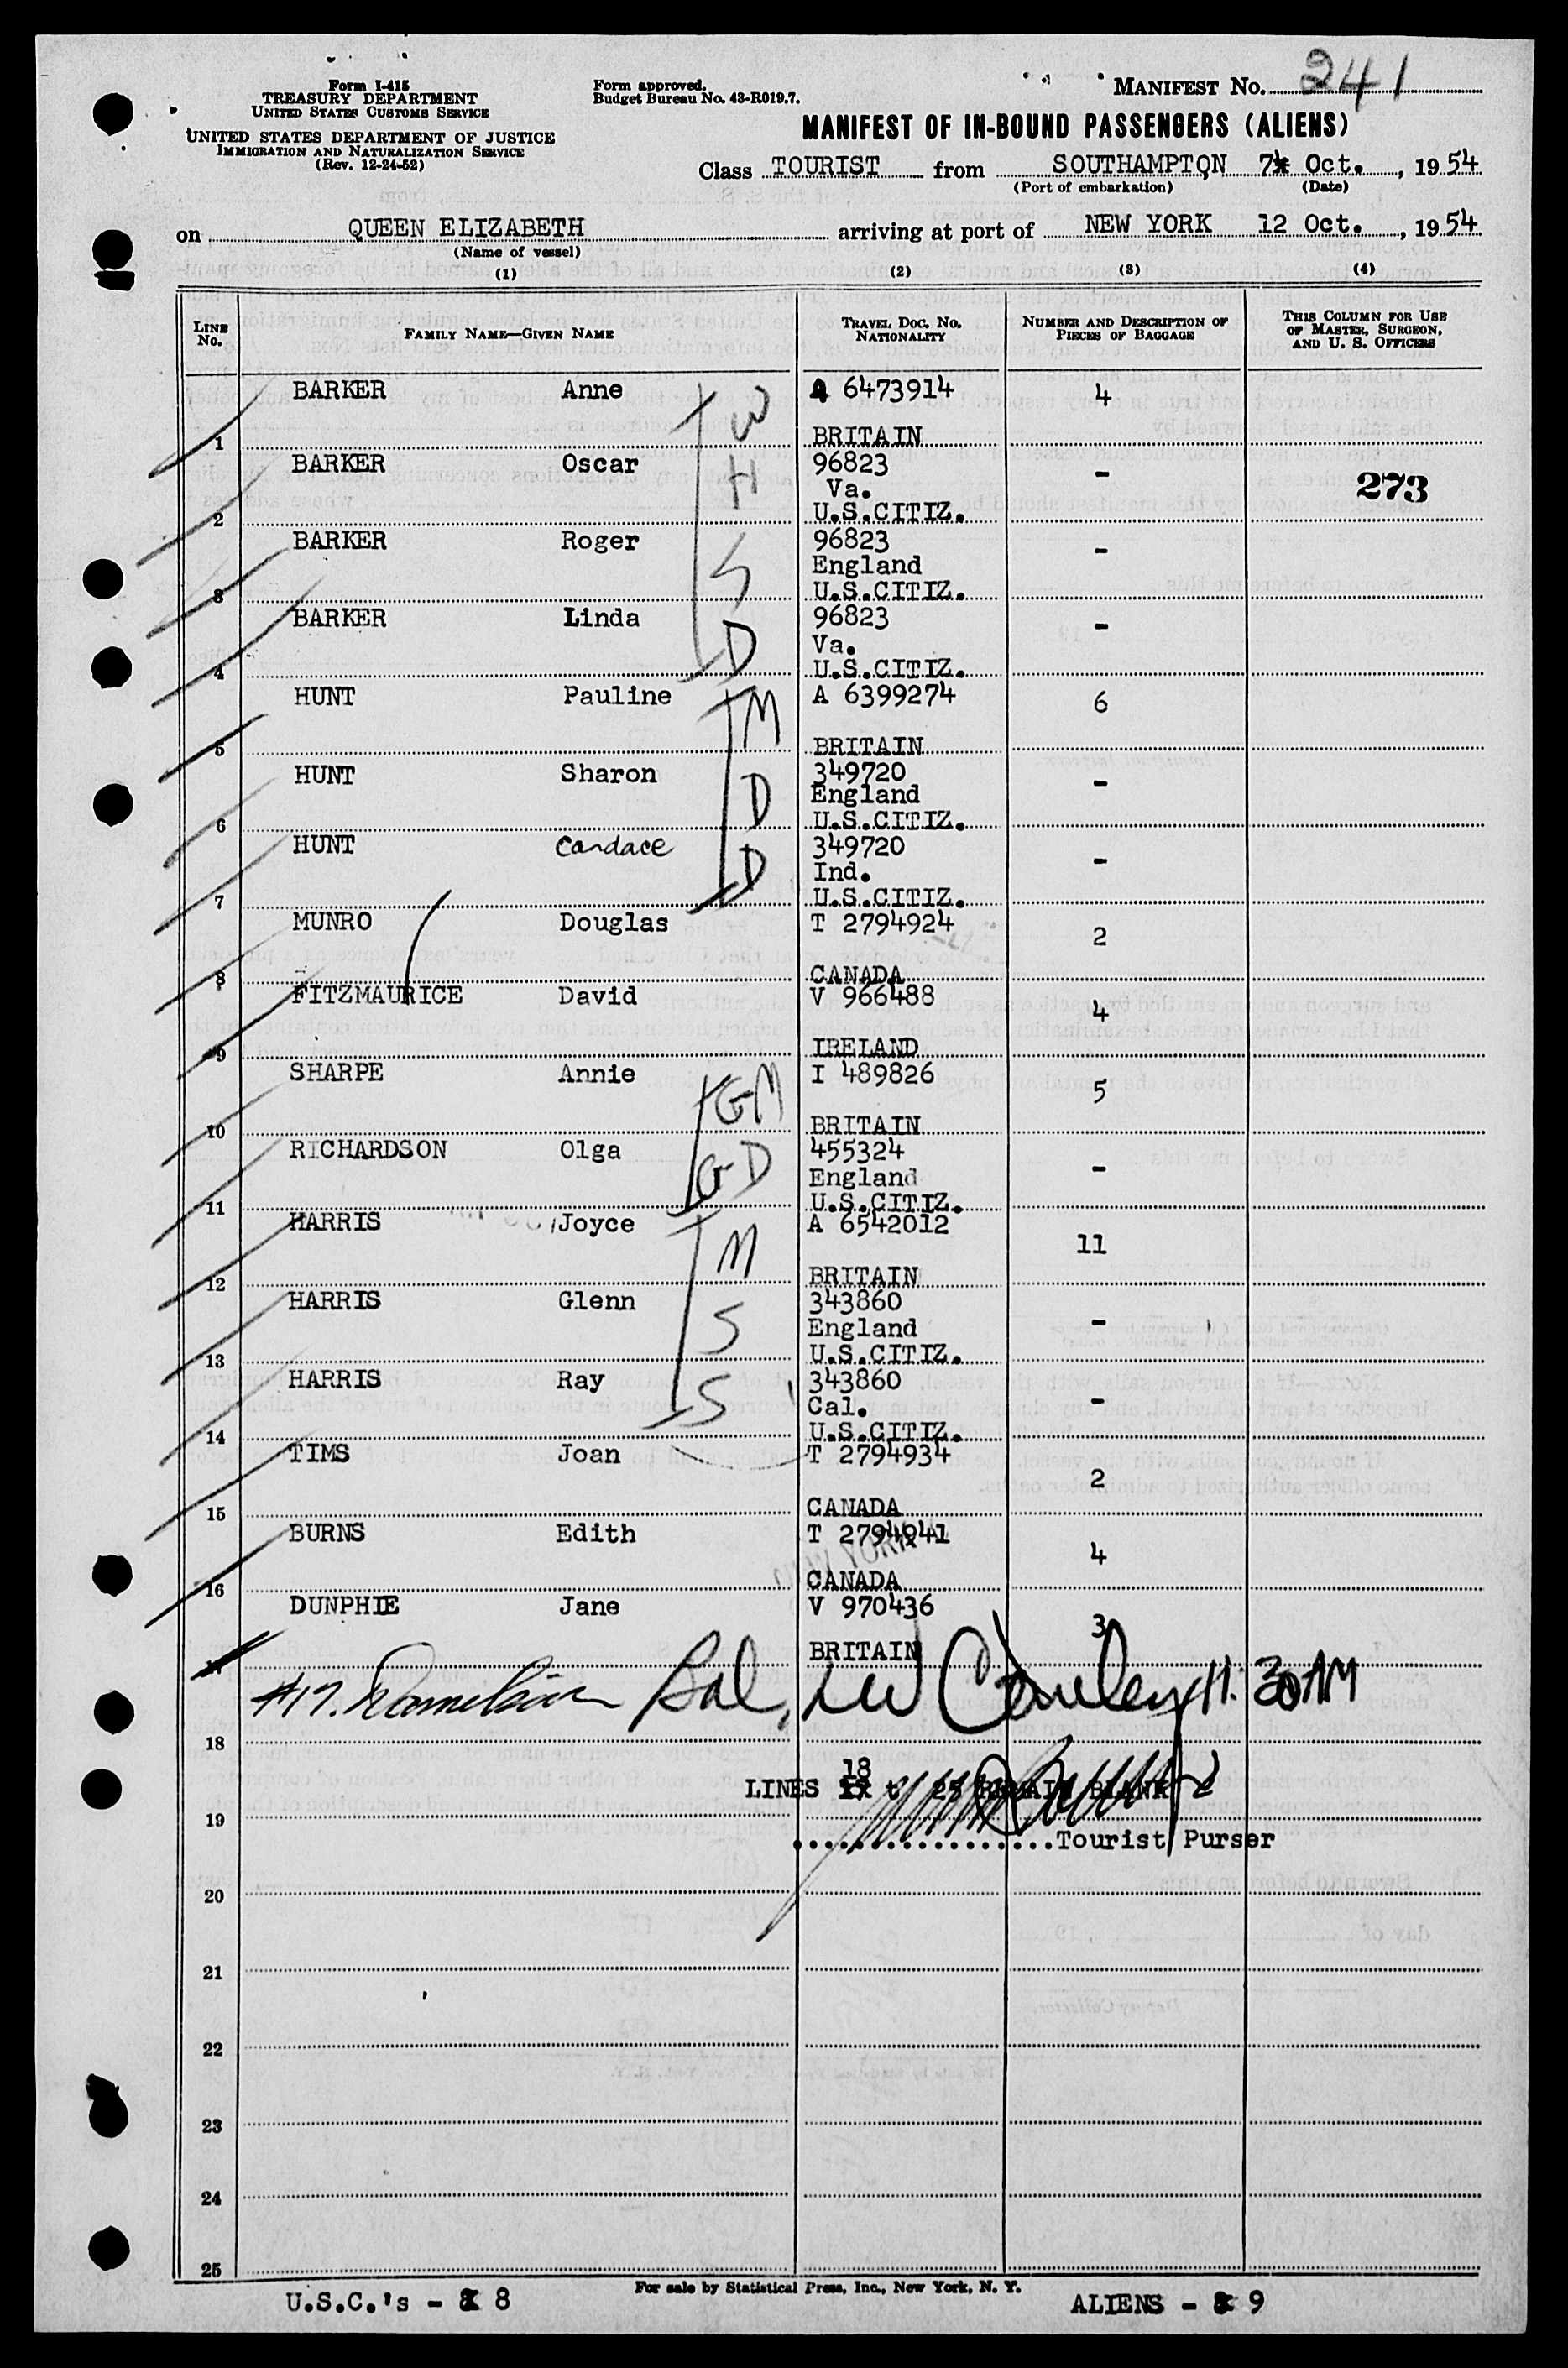 Form I-415
TREASURY DEPARTMENT
UNITED STATES CUSTOMS SERVICE
UNITED STATES DEPARTMENT OF JUSTICE
IMMIGRATION AND NATURALIZATION SERVICE
(Rev. 12-24-52)
Form approved.
Budget Bureau No. 43-R019.7.
MANIFEST No. 241
MANIFEST OF IN-BOUND PASSENGERS (ALIENS)
Class TOURIST from SOUTHAMPTON, 7 Oct., 1954
(Port of embarkation) (Date)
on QUEEN ELIZABETH arriving at port of NEW YORK 12 Oct., 1954
(Name of vessel)
(1) (2) (3) (4)
LINE No. FAMILY NAME—GIVEN NAME TRAVEL DOC. No. NATIONALITY NUMBER AND DESCRIPTION OF PIECES OF BAGGAGE THIS COLUMN FOR USE OF MASTER, SURGEON, AND U. S. OFFICERS
BARKER Anne W A 6473914 4
1 BRITAIN
BARKER Oscar H 96823 -
Va. 273
2 U.S.CITIZ.
BARKER Roger S 96823 -
England
3 U.S.CITIZ.
BARKER Linda D 96823 -
Va.
4 U.S.CITIZ.
HUNT Pauline M A 6399274 6
5 BRITAIN
HUNT Sharon D 349720 -
England
6 U.S.CITIZ.
HUNT Candace D 349720 -
Ind.
7 U.S.CITIZ.
MUNRO Douglas T 2794924 2
8 CANADA
FITZMAURICE David V 966488 4
9 IRELAND
SHARPE Annie GM I 489826 5
10 BRITAIN
RICHARDSON Olga GD 455324 -
England
11 U.S.CITIZ.
HARRIS Joyce M A 6542012 11
12 BRITAIN
HARRIS Glenn S 343860 -
England
13 U.S.CITIZ.
HARRIS Ray S 343860 -
Cal.
14 U.S.CITIZ.
TIMS Joan T 2794934 2
15 CANADA
BURNS Edith T 2794941 4
NEW YORK
16 CANADA
DUNPHIE Jane V 970436 3
17 BRITAIN
#17. Bal, 11:30 AM
18
LINES 18 to 25 REMAIN BLANK
19
Tourist Purser
20
21
22
23
24
25
For sale by Statistical Press, Inc., New York, N. Y.
U.S.C.'s - 8 ALIENS - 9